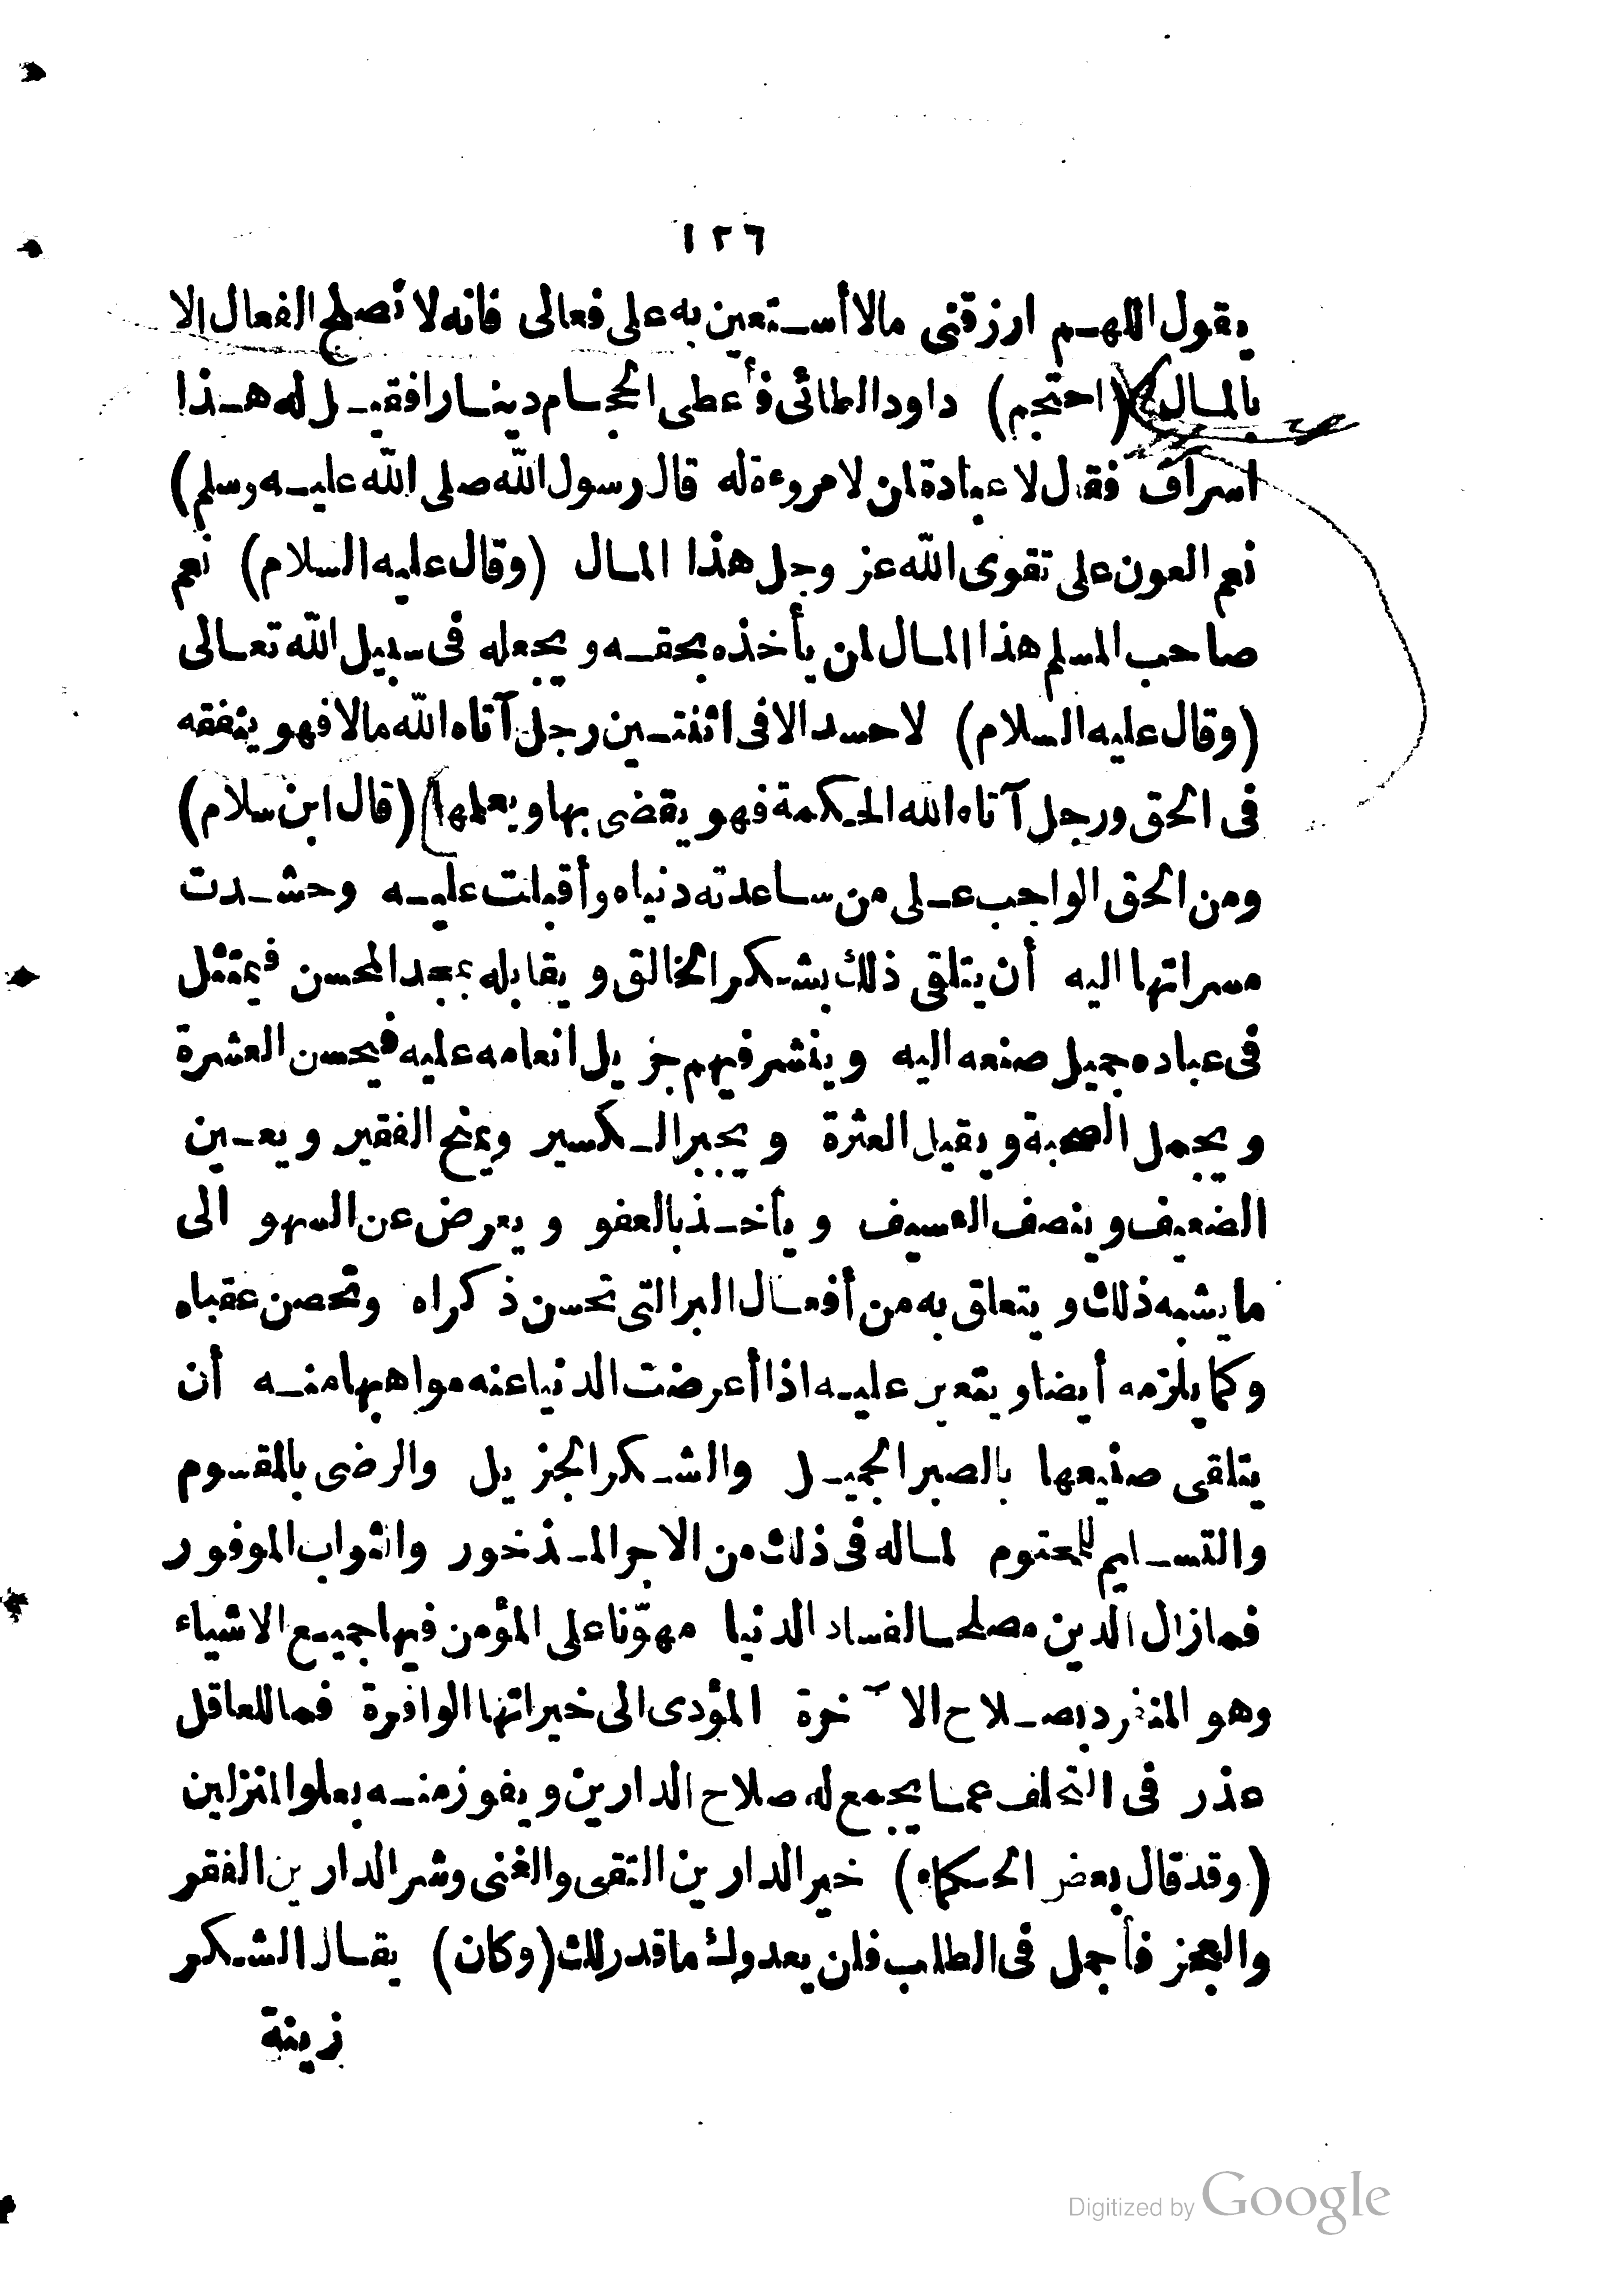 ١٢٦
يقول اللهم ارزقنى مالا أستعين به على فعالى فانه لا تصلح الفعال الا
بالمال (احتجم) داود الطائى فأعطى الحجام دينارا فقيل له هذا
اسراف فقال لا عبادة لمن لا مروءة له قال رسول الله صلى الله عليه وسلم)
نعم العون على تقوى الله عز وجل هذا المال (وقال عليه السلام) نعم
صاحب المسلم هذا المال لمن يأخذه بحقه ويجعله فى سبيل الله تعالى
(وقال عليه السلام) لا حسد الا فى اثنتين رجل آتاه الله مالا فهو ينفقه
فى الحق ورجل آتاه الله الحكمة فهو يقضى بها ويعلمها (قال ابن سلام)
ومن الحق الواجب على من ساعدته دنياه وأقبلت عليه وحشدت
مسراتها اليه أن يتلقى ذلك بشكر الخالق ويقابله بمجد المحسن فيمتثل
فى عباده جميل صنعه اليه وينشر فيهم جزيل انعامه عليه فيحسن العشرة
ويجمل الصحبة ويقيل العثرة ويجبر الكسير ويمنح الفقير ويعين
الضعيف وينصف العسيف ويأخذ بالعفو ويعرض عن السهو الى
ما يشبه ذلك ويتعلق به من أفعال البر التى تحسن ذكراه وتحصن عقباه
وكما يلزمه أيضا ويتعين عليه اذا أعرضت الدنيا عنه مواهبها منه أن
يتلقى صنيعها بالصبر الجميل والشكر الجزيل والرضى بالمقسوم
والتسليم للمحتوم لماله فى ذلك من الاجر المذخور والثواب الموفور
فما زال الدين مصلحا لفساد الدنيا مهوّنا على المؤمن فيها جميع الاشياء
وهو المنفرد بصلاح الآخرة المؤدى الى خيراتها الوافرة فما للعاقل
عذر فى التخلف عما يجمع له صلاح الدارين ويفوز منه بعلو المنزلين
(وقد قال بعض الحكماء) خير الدارين التقى والغنى وشر الدارين الفقر
والعجز فأجمل فى الطلب فلن يعدوك ما قدر لك (وكان) يقال الشكر
زينة
Digitized by Google